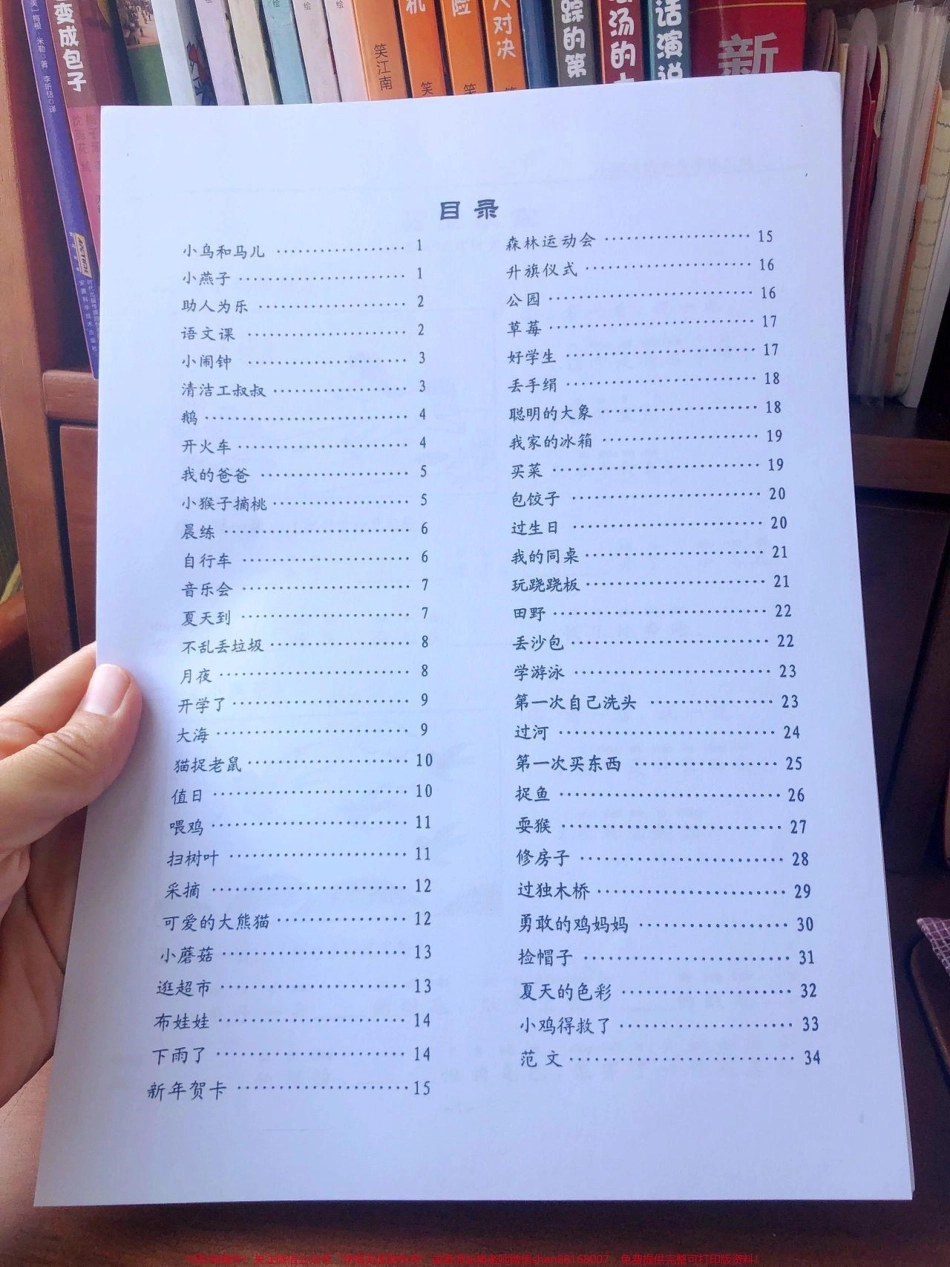 变成包子
机
险
大对决
踪的第
话演说
新
笑江南
笑
笑
目录
小鸟和马儿 ………………… 1
小燕子 ………………… 1
助人为乐 ………………… 2
语文课 ………………… 2
小闹钟 ………………… 3
清洁工叔叔 ………………… 3
鹅 ………………… 4
开火车 ………………… 4
我的爸爸 ………………… 5
小猴子摘桃 ………………… 5
晨练 ………………… 6
自行车 ………………… 6
音乐会 ………………… 7
夏天到 ………………… 7
不乱丢垃圾 ………………… 8
月夜 ………………… 8
开学了 ………………… 9
大海 ………………… 9
猫捉老鼠 ………………… 10
值日 ………………… 10
喂鸡 ………………… 11
扫树叶 ………………… 11
采摘 ………………… 12
可爱的大熊猫 ………………… 12
小蘑菇 ………………… 13
逛超市 ………………… 13
布娃娃 ………………… 14
下雨了 ………………… 14
新年贺卡 ………………… 15
森林运动会 ………………… 15
升旗仪式 ………………… 16
公园 ………………… 16
草莓 ………………… 17
好学生 ………………… 17
丢手绢 ………………… 18
聪明的大象 ………………… 18
我家的冰箱 ………………… 19
买菜 ………………… 19
包饺子 ………………… 20
过生日 ………………… 20
我的同桌 ………………… 21
玩跷跷板 ………………… 21
田野 ………………… 22
丢沙包 ………………… 22
学游泳 ………………… 23
第一次自己洗头 ………………… 23
过河 ………………… 24
第一次买东西 ………………… 25
捉鱼 ………………… 26
耍猴 ………………… 27
修房子 ………………… 28
过独木桥 ………………… 29
勇敢的鸡妈妈 ………………… 30
捡帽子 ………………… 31
夏天的色彩 ………………… 32
小鸡得救了 ………………… 33
范文 ………………… 34